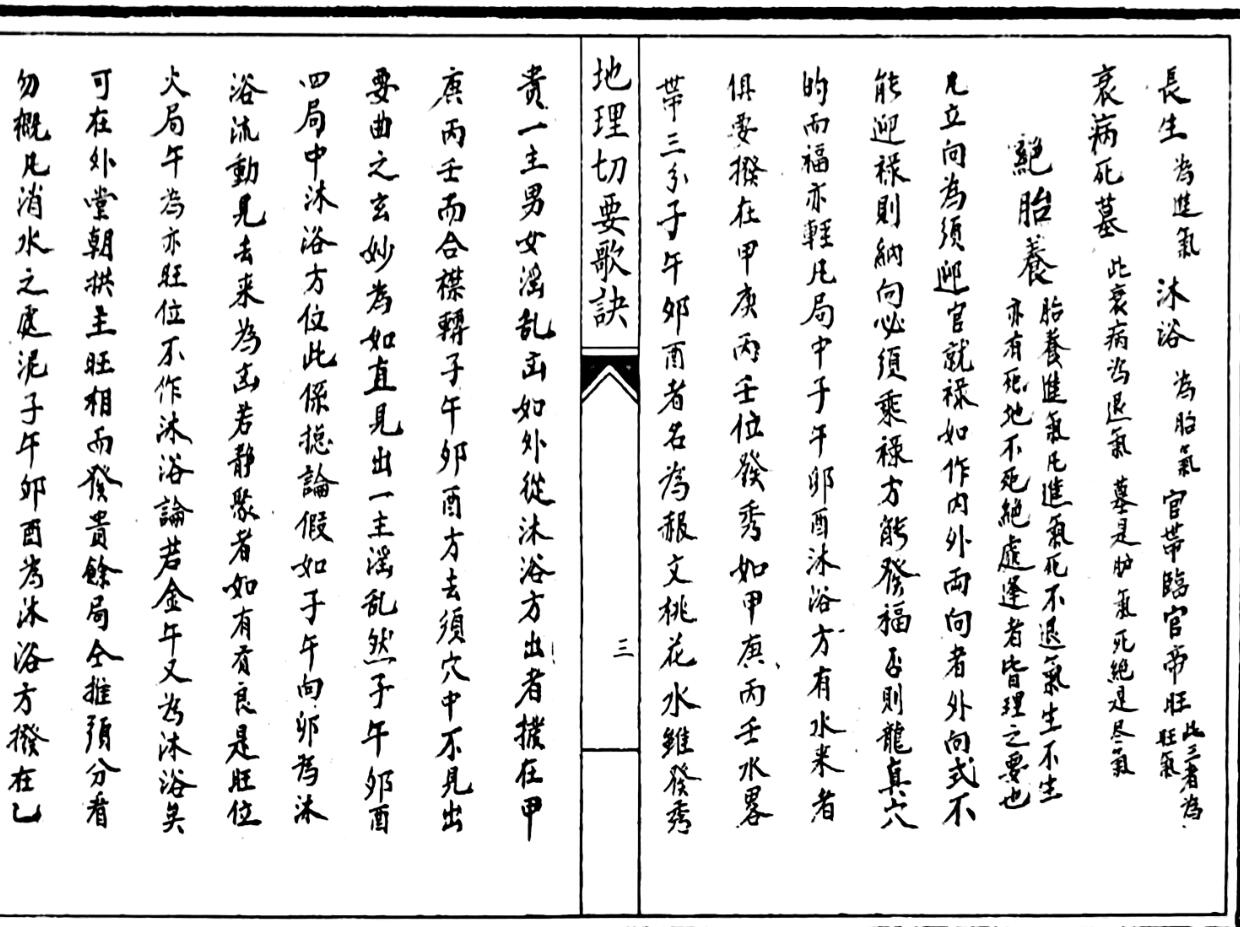 長生為進氣沐浴為胎氣官帶臨官帝旺此三者為旺氣
衰病死墓此衰病為退氣墓是胎氣死絕是尽氣
絕胎養胎養進氣凡進氣死不退氣生不生亦有死地不死絕處逢者皆理之要也
凡立向為須迎官就祿如作內外両向者外向式不
能迎祿則納向必須乘祿方能發福否則龍真穴
的而福亦輕凡局中子午卯酉沐浴方有水来者
俱要撥在甲庚丙壬位發秀如甲庚丙壬水畧
帶三分子午卯酉者名為赧文桃花水雖發秀
地理切要歌訣
三
貴一主男女淫乱凶如外從沐浴方出者撥在甲
庚丙壬而合襟轉子午卯酉方去須穴中不見出
要曲之玄妙為如直見出一主淫乱然子午卯酉
四局中沐浴方位此係總論假如子午向卯為沐
浴流動見去来為凶若静聚者如有有良是旺位
火局午為亦旺位不作沐浴論若金午又為沐浴矣
可在外堂朝拱主旺相而發貴餘局仝推須分看
勿概凡消水之處泥子午卯酉為沐浴方撥在乙